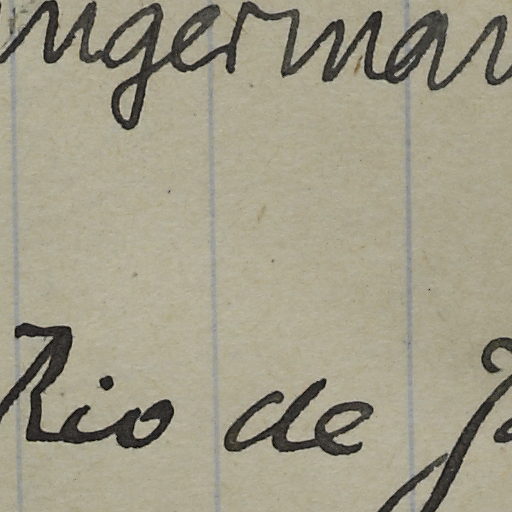 ngerman
Rio de Ja